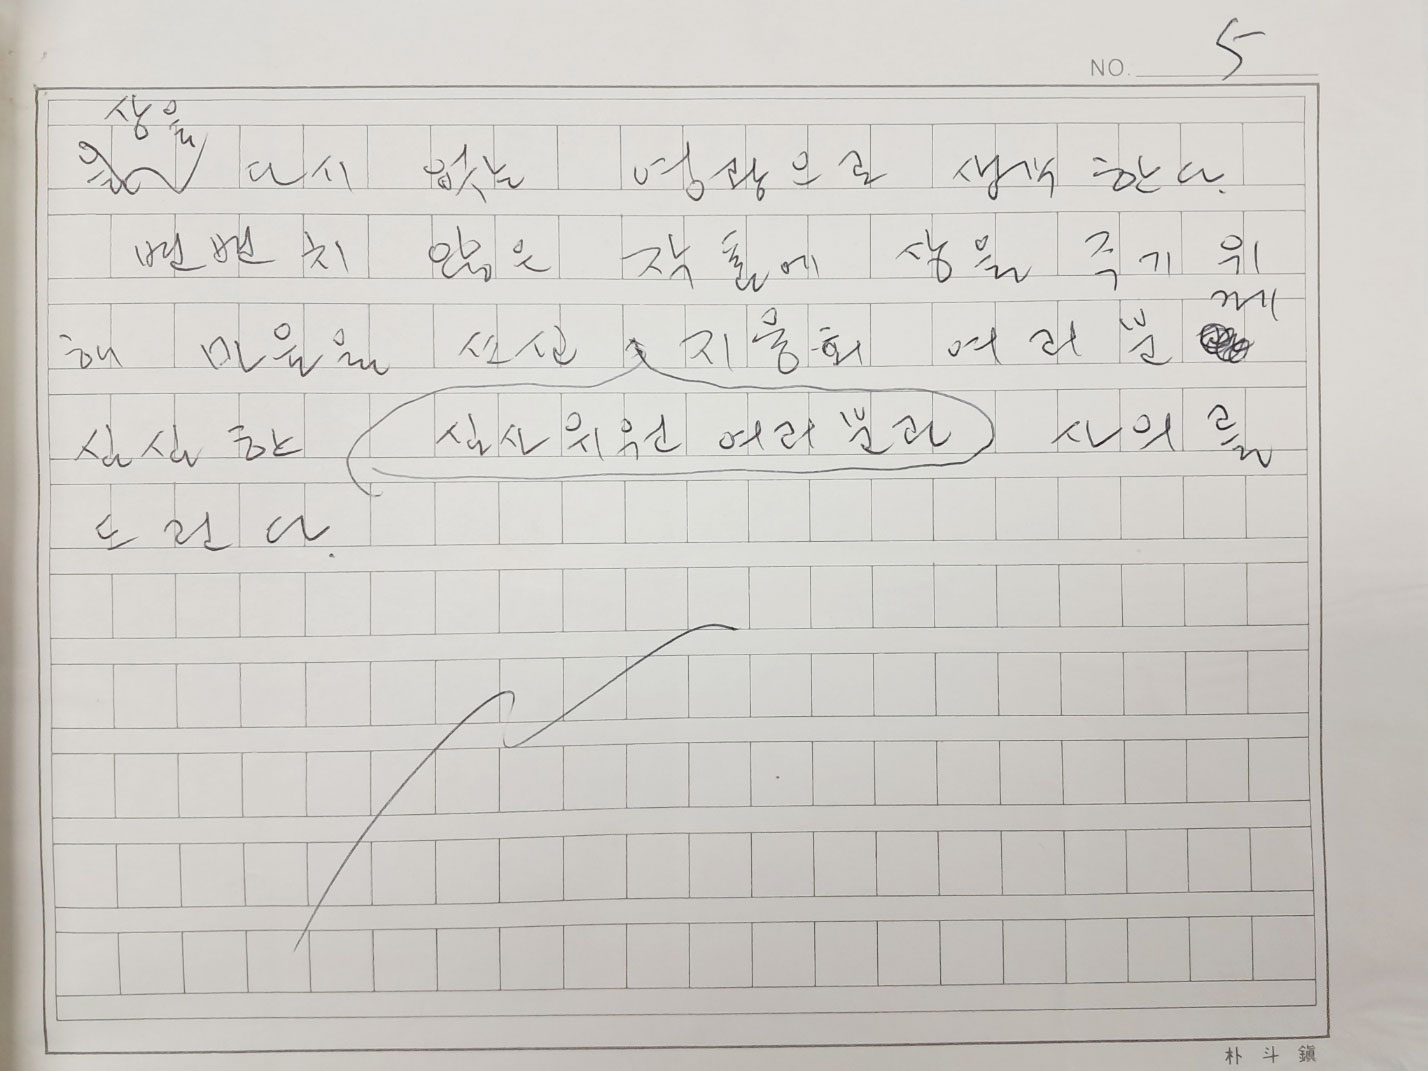 NO. 5
상을
을 다시 없는 영광으로 생각한다.
변변치 않은 작품에 상을 주기 위
께
해 마음을 쓰신 지용회 여러분
심심한 심사위원 여러분과 사의를
드린다.
朴斗鎭